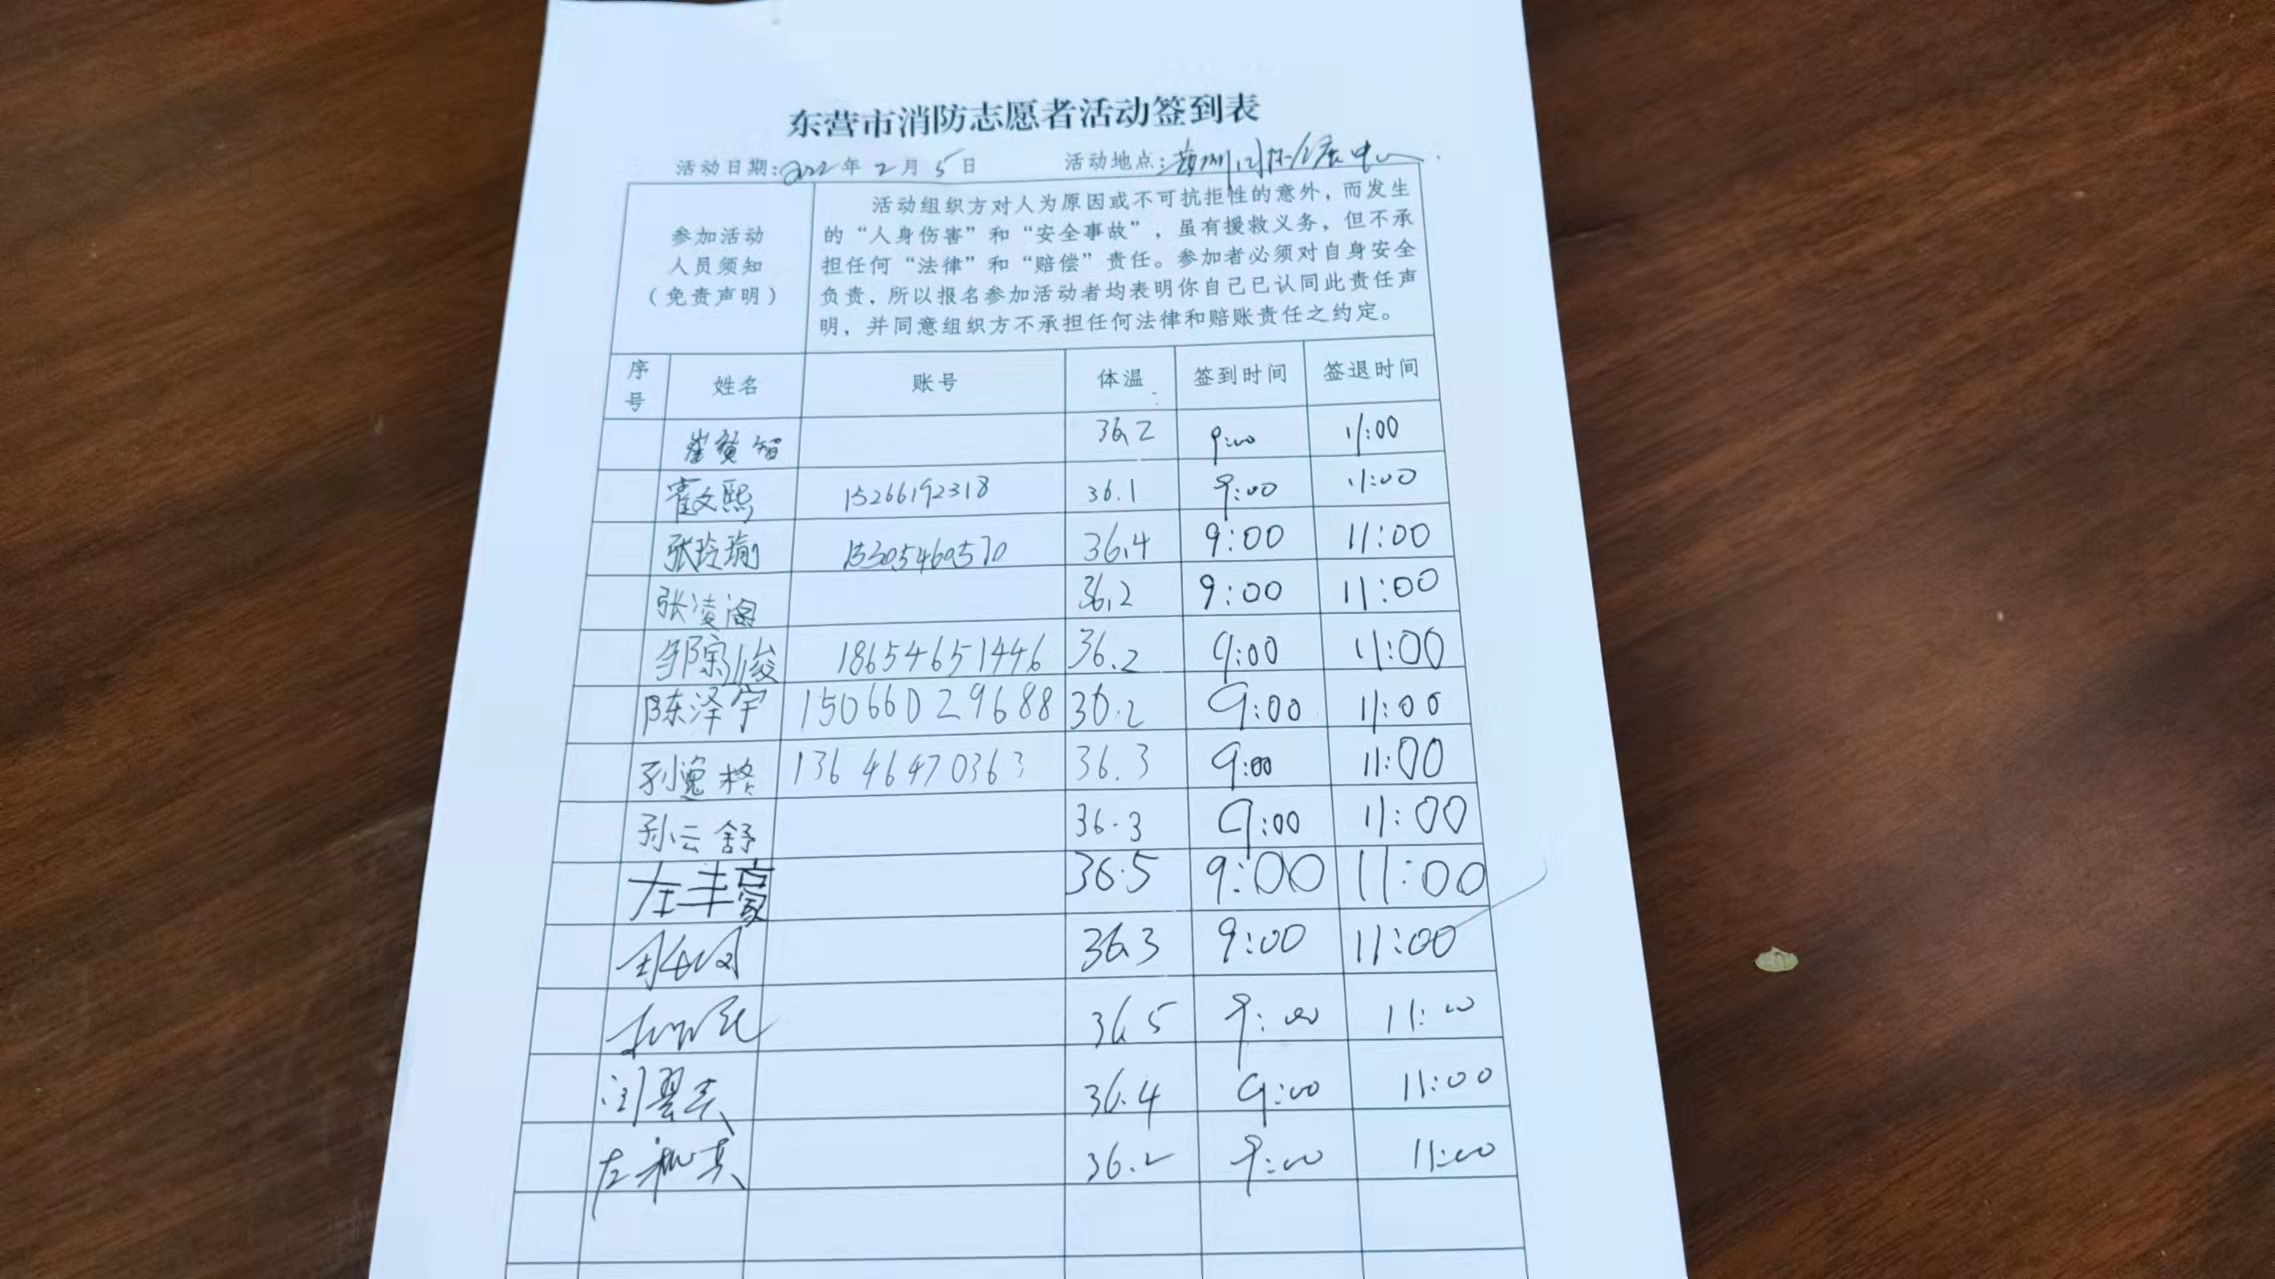 东营市消防志愿者活动签到表
活动日期:2022年2月5日 活动地点:
参加活动
人员须知
(免责声明)
活动组织方对人为原因或不可抗拒性的意外,而发生
的“人身伤害”和“安全事故”,虽有援救义务,但不承
担任何“法律”和“赔偿”责任。参加者必须对自身安全
负责,所以报名参加活动者均表明你自己已认同此责任声
明,并同意组织方不承担任何法律和赔账责任之约定。
序号 姓名 账号 体温 签到时间 签退时间
崔贺智 36.2 9:00 11:00
霍文熙 15266192318 36.1 9:00 11:00
张玲瑜 15305460570 36.4 9:00 11:00
张凌阁 36.2 9:00 11:00
邹宗峻 18654651446 36.2 9:00 11:00
陈泽宇 15066029688 36.2 9:00 11:00
孙逸格 13646470363 36.3 9:00 11:00
孙云舒 36.3 9:00 11:00
左丰豪 36.5 9:00 11:00
36.3 9:00 11:00
36.5 9:00 11:00
36.4 9:00 11:00
左 36.2 9:00 11:00